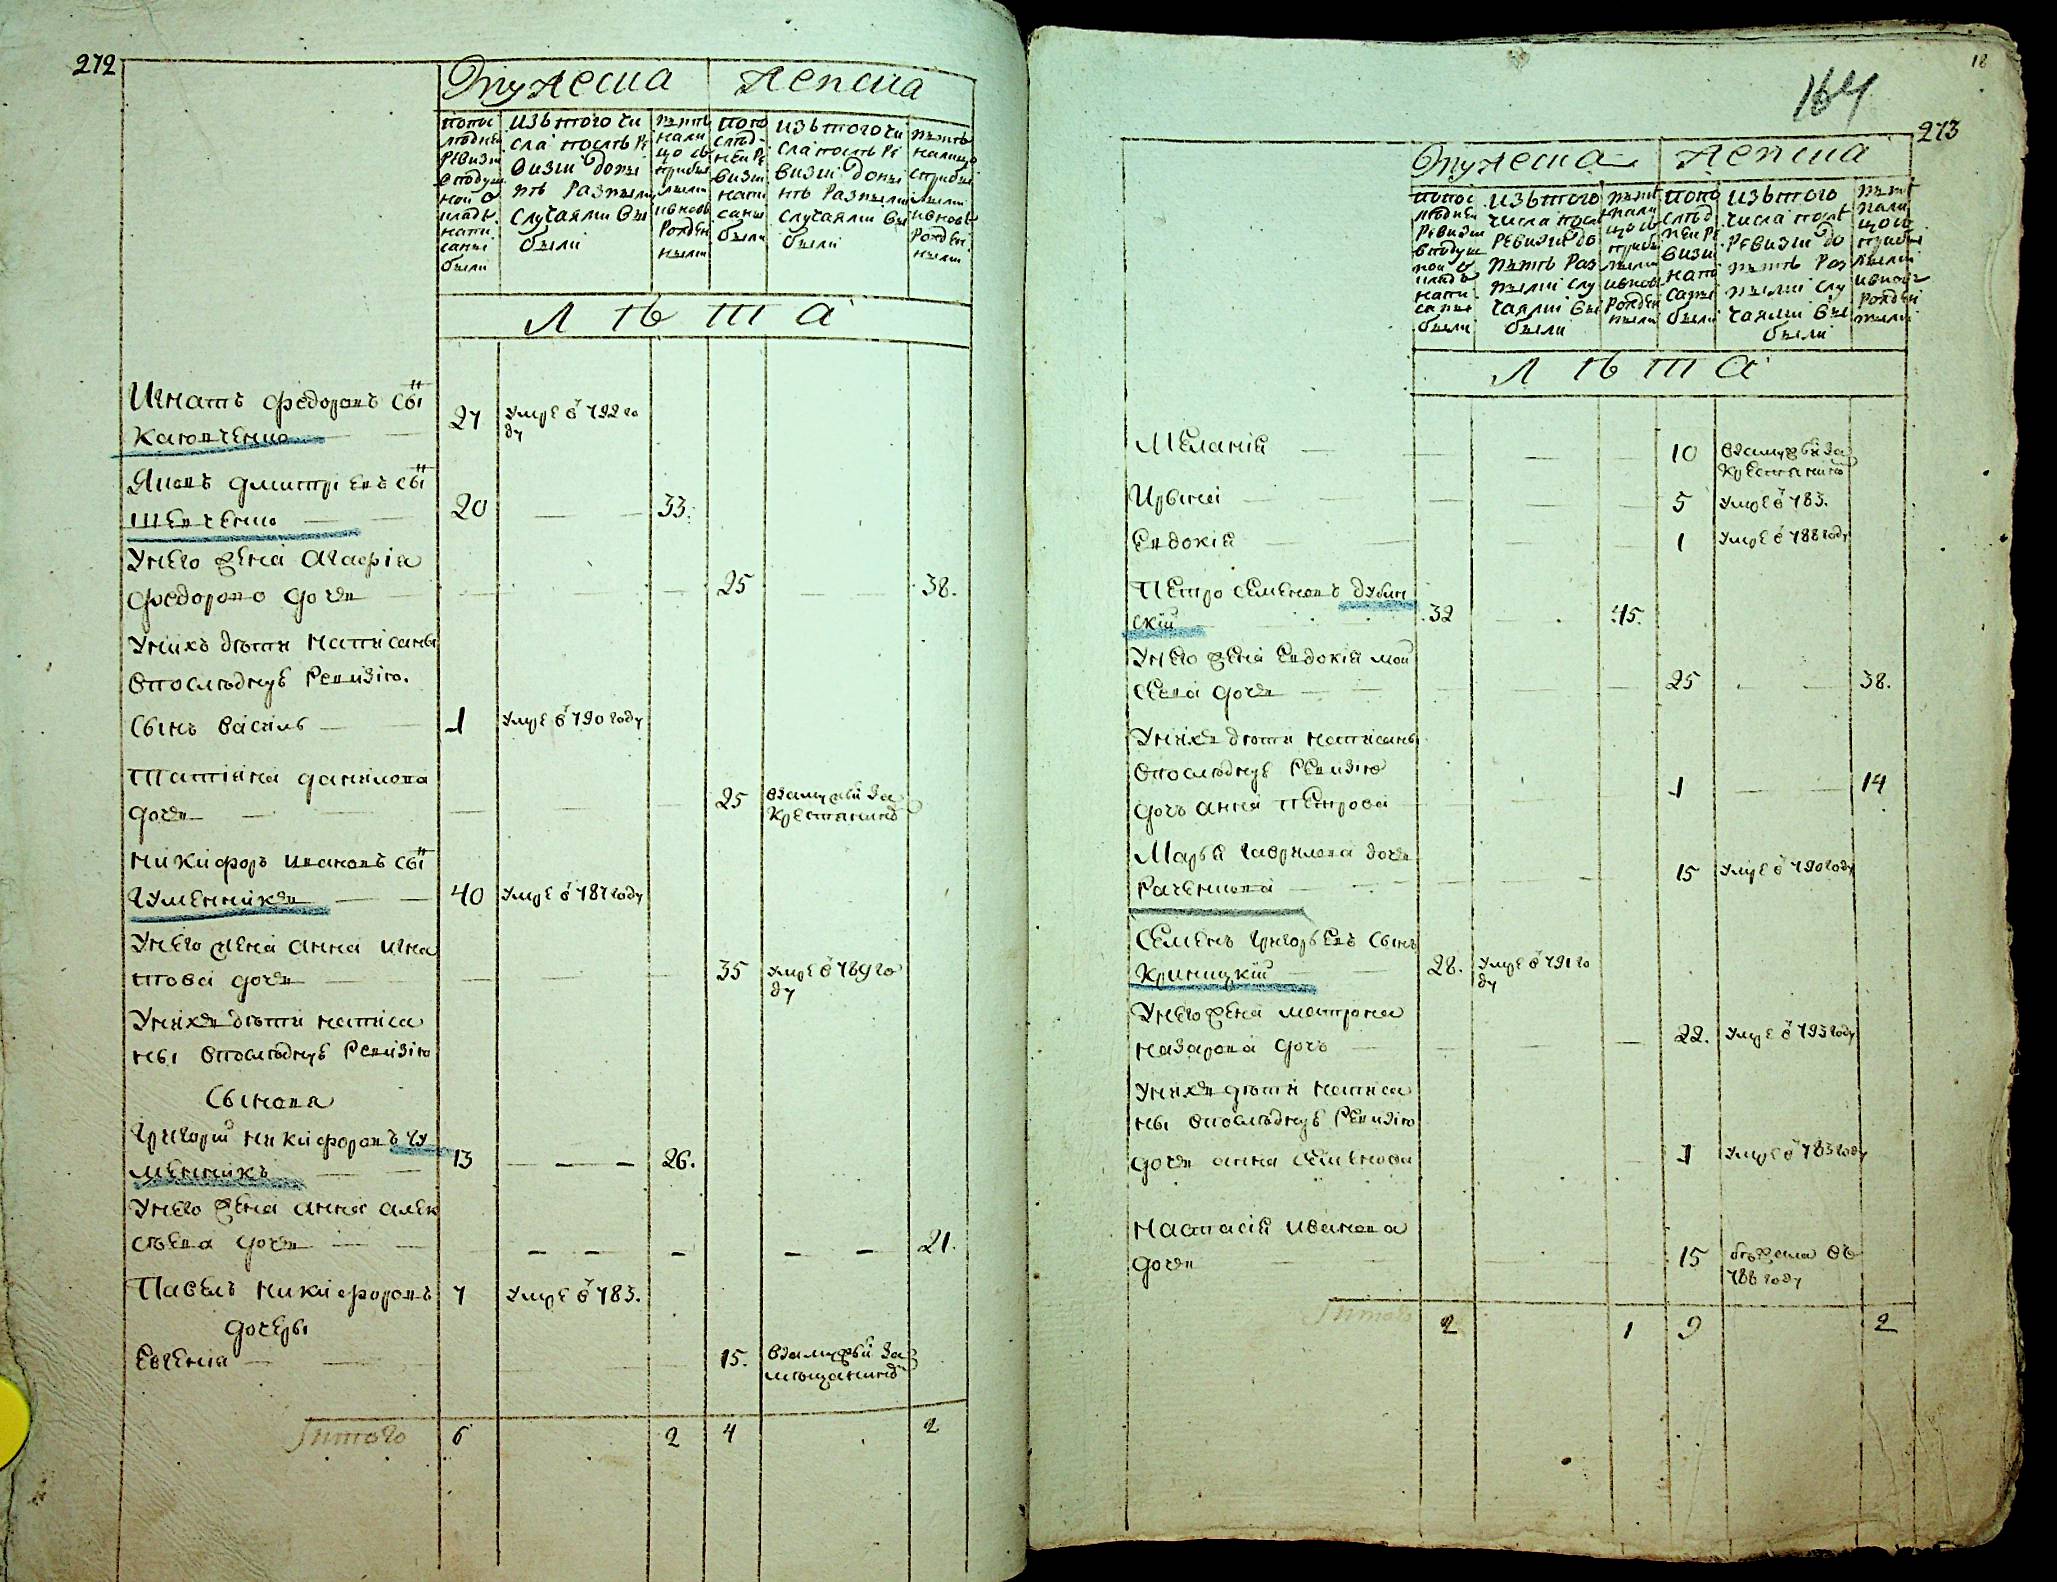 272
Мужеска
Женска
попос
лѣдней
Ревизи
в подуш
ной о
кладъ
напи
саны
были
изъ того чи
сла послѣ Ре
визии до ны
нѣ разными
случаями вы
были
нынѣ
нали
цо съ
прибы
лыми
и вновь
рожден
ными
попо
слѣд
ней Ре
визи
напи
саны
были
изъ того чи
сла послѣ Ре
визии до ны
нѣ разными
случаями вы
были
нынѣ
налицо
с прибы
лыми
и вновь
рожден
ными
ЛѢТА
Игнатъ Федоровъ сынъ
27
умре в 792 го
ду
Яковъ Дмитріевъ сынъ
Шевченко
20
33.
У него жена Агафія
Федорова дочь
25
38.
У нихъ дѣти написаны
в последнуѣ Ревизію.
Сынъ Василь
1
умре в 790 году
Татіяна Данилова
дочь
25
в замужѣй за
крестянино
Никифоръ Ивановъ сынъ
Гуменникъ
40
умре в 787 году
У него жена Анна Игна
това дочь
35
умре в 789 го
ду
У нихъ дѣти написа
ны в последнуѣ Ревизію
Сынова
Григорій Никифоровъ Гу
менникъ
13
26.
У него жена Анна Алек
сѣева дочь
21.
Павелъ Никифоровъ
7
умре в 783.
дочеры
Евгенія
15.
в замужѣй за
мѣщанино
Итого
6
2
4
2
18
164
273
Мужеска
Женска
попос
лѣдней
Ревизи
в подуш
ной о
кладъ
напи
саны
были
изъ того
числа посл
Ревизии до
нынѣ раз
ными слу
чаями вы
были
нынѣ
нали
цо съ
прибы
лыми
и вновь
рожден
ными
попо
слѣд
ней Ре
визи
напи
саны
были
изъ того
числа послѣ
Ревизии до
нынѣ раз
ными слу
чаями вы
были
нынѣ
нали
цо съ
прибы
лыми
и вновь
рожден
ными
ЛѢТА
Меланія
10
в замужѣй за
крестянино
Ирына
5
умре в 783.
Евдокія
1
умре в 788 году
Петро Семеновъ Дубин
скій
32
45.
У него жена Евдокія Мой
сеева дочь
25
38.
У нихъ дѣти написаны
в последнуѣ Ревизію
дочъ Анна Петрова
1
14
Марья Гаврилова дочь
15
умре в 790 году
Семенъ Григорьевъ сынъ
Криницкій
28.
умре в 791 го
ду
У него жена Матрона
Назарова дочъ
22.
умре в 793 году
У нихъ дѣти написа
ны в последнуѣ Ревизію
дочь Анна Семенова
1
умре в 783 году
Настасія Иванова
дочь
15
бѣжала въ
788 году
Итого
2
1
9
2